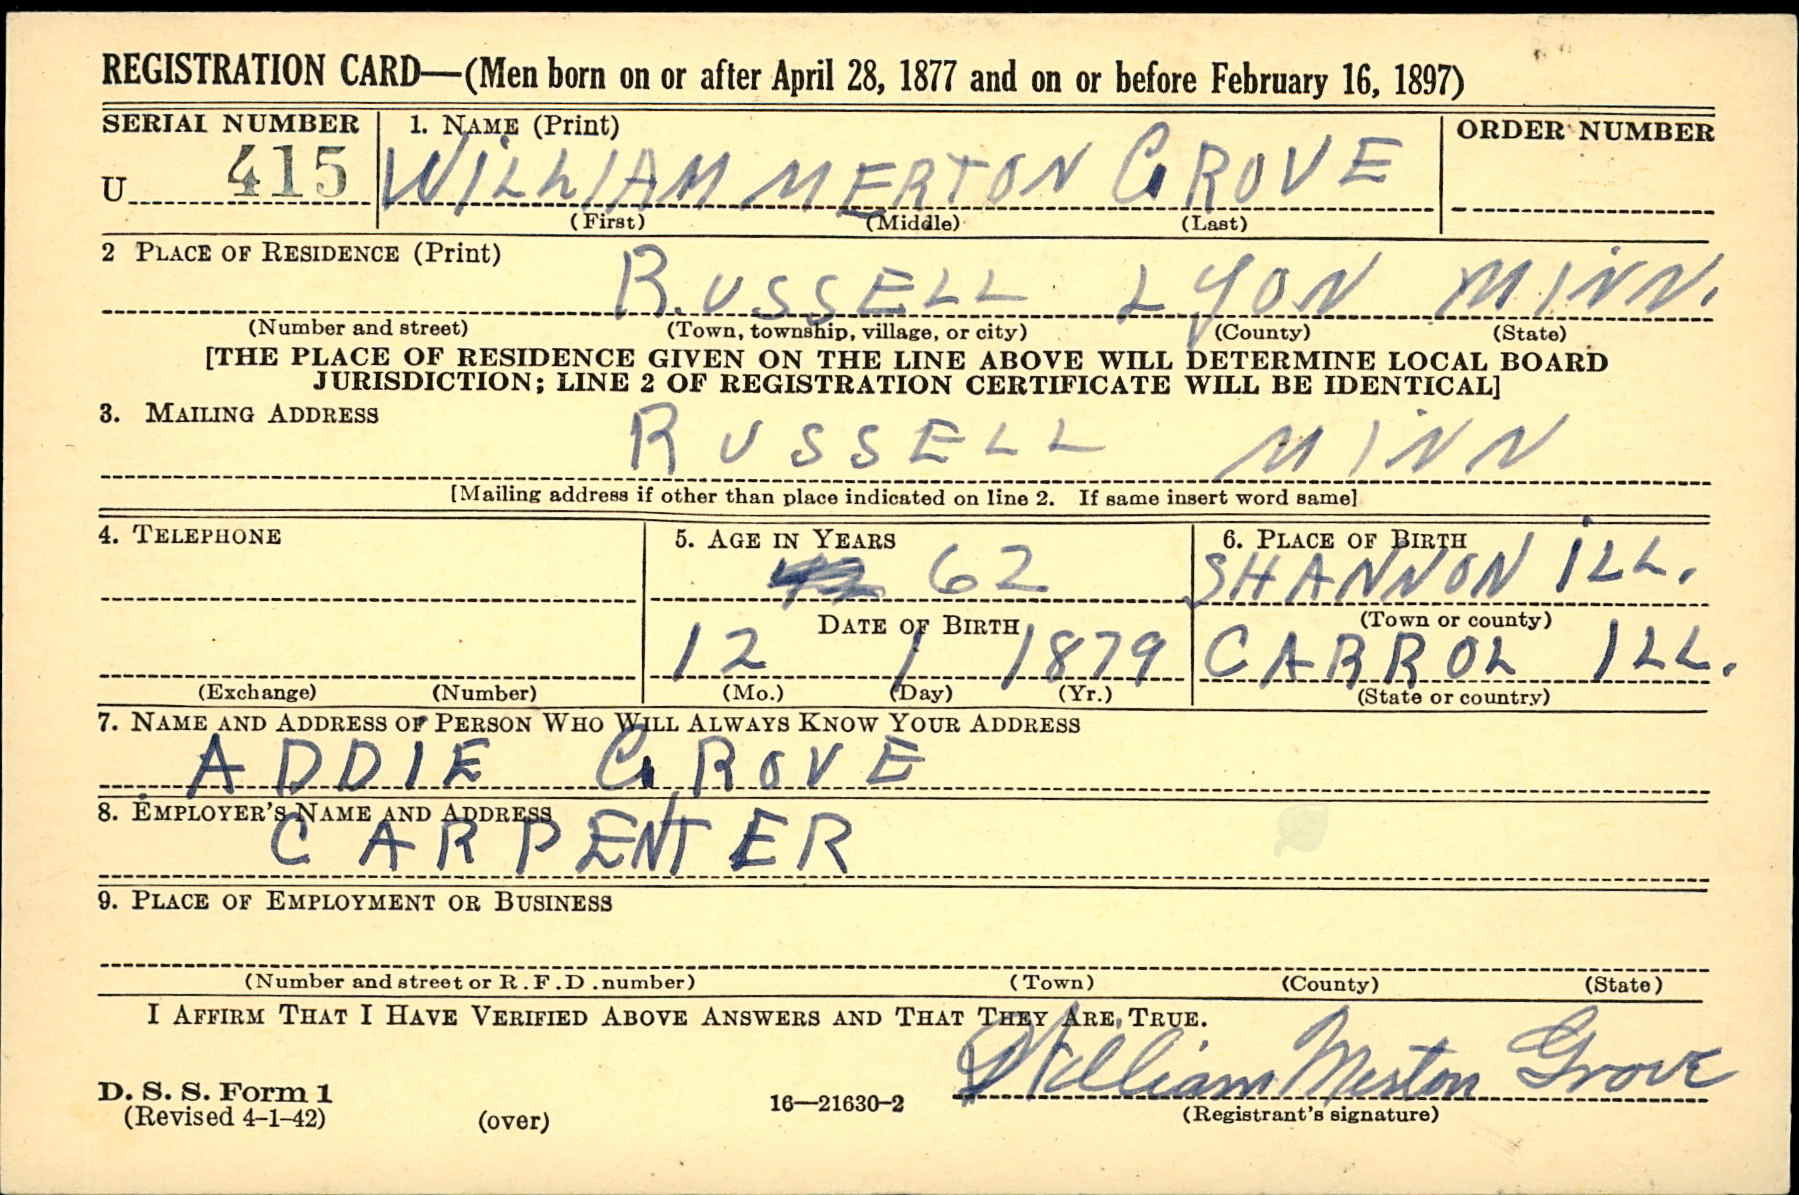 REGISTRATION CARD—(Men born on or after April 28, 1877 and on or before February 16, 1897)
SERIAL NUMBER 1. NAME (Print) ORDER NUMBER
U 415 WILLIAM MERTON GROVE
(First) (Middle) (Last)
2 PLACE OF RESIDENCE (Print)
RUSSELL LYON MINN.
(Number and street) (Town, township, village, or city) (County) (State)
[THE PLACE OF RESIDENCE GIVEN ON THE LINE ABOVE WILL DETERMINE LOCAL BOARD
JURISDICTION; LINE 2 OF REGISTRATION CERTIFICATE WILL BE IDENTICAL]
3. MAILING ADDRESS
RUSSELL MINN
[Mailing address if other than place indicated on line 2. If same insert word same]
4. TELEPHONE 5. AGE IN YEARS 6. PLACE OF BIRTH
62 SHANNON ILL.
DATE OF BIRTH (Town or county)
12 1 1879 CARROL ILL.
(Exchange) (Number) (Mo.) (Day) (Yr.) (State or country)
7. NAME AND ADDRESS OF PERSON WHO WILL ALWAYS KNOW YOUR ADDRESS
ADDIE GROVE
8. EMPLOYER'S NAME AND ADDRESS
CARPENTER
9. PLACE OF EMPLOYMENT OR BUSINESS
(Number and street or R.F.D. number) (Town) (County) (State)
I AFFIRM THAT I HAVE VERIFIED ABOVE ANSWERS AND THAT THEY ARE TRUE.
William Merton Grove
D. S. S. Form 1
(Revised 4-1-42) (over) 16—21630-2 (Registrant's signature)